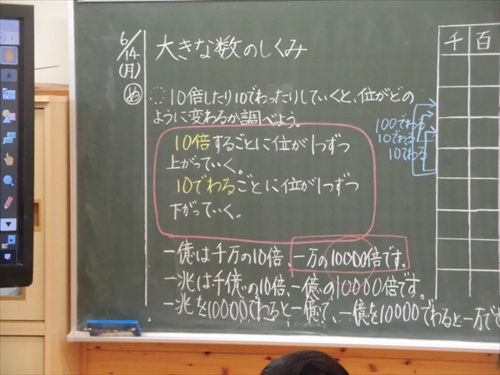 6/14(月)
大きな数のしくみ
め
10倍したり10でわったりしていくと、位がどの
ように変わるか調べよう。
10倍するごとに位が1つずつ
上がっていく。
10でわるごとに位が1つずつ
下がっていく。
一億は千万の10倍、一万の10000倍です。
一兆は千億の10倍、一億の10000倍です。
一兆を10000でわると一億で、一億を10000でわると一万で
千 百
100でわる
10でわる
10でわる